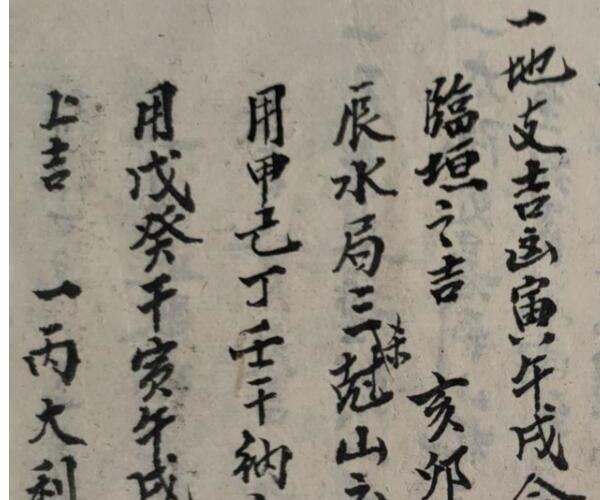 一地支吉凶寅午戌
臨垣之吉 亥卯
辰水局三未尅山
用甲己丁壬干納
用戊癸干寅午戌
上吉 一丙大利